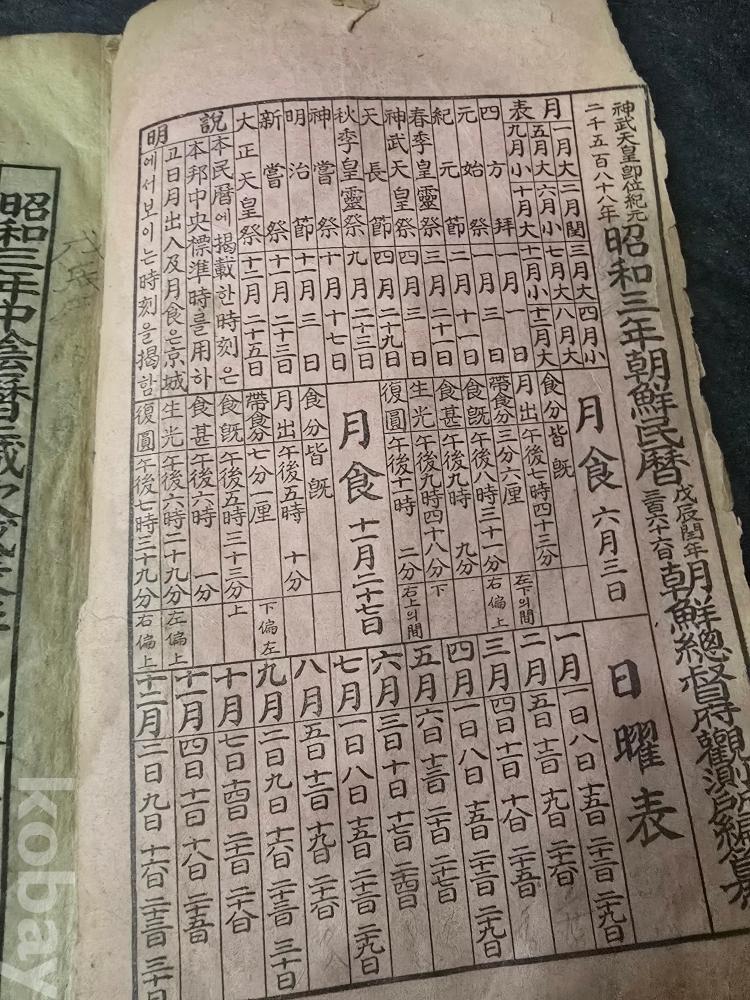 神武天皇卽位紀元
二千五百八十八年
昭和三年朝鮮民曆
戊辰閏年
三百六十六日
朝鮮總督府觀測所編纂
月表
一月大 二月閏 三月大 四月小
五月大 六月小 七月大 八月大
九月小 十月大 十一月小 十二月大
四方拜 一月一日
元始祭 一月三日
紀元節 二月十一日
春季皇靈祭 三月二十一日
神武天皇祭 四月三日
天長節 四月二十九日
秋季皇靈祭 九月二十三日
神嘗祭 十月十七日
明治節 十一月三日
新嘗祭 十一月二十三日
大正天皇祭 十二月二十五日
說明
本民曆에揭載한時刻은
本邦中央標準時를用하
고日月出入及月食은京城
에서보이는時刻을揭함
月食 六月三日
食分 皆旣
月出 午後七時四十三分
帶食分 三分六厘 左下의間
食旣 午後八時三十一分 右偏上
食甚 午後九時 九分
生光 午後九時四十八分 下
復圓 午後十一時 二分 右上의間
月食 十一月二十七日
食分 皆旣
月出 午後五時 十分
帶食分 七分一厘 下偏左
食旣 午後五時三十三分 上
食甚 午後六時 一分
生光 午後六時二十九分 左偏上
復圓 午後七時三十九分 右偏上
日曜表
一月 一日 八日 十五日 二十二日 二十九日
二月 五日 十二日 十九日 二十六日
三月 四日 十一日 十八日 二十五日
四月 一日 八日 十五日 二十二日 二十九日
五月 六日 十三日 二十日 二十七日
六月 三日 十日 十七日 二十四日
七月 一日 八日 十五日 二十二日 二十九日
八月 五日 十二日 十九日 二十六日
九月 二日 九日 十六日 二十三日 三十日
十月 七日 十四日 二十一日 二十八日
十一月 四日 十一日 十八日 二十五日
十二月 二日 九日 十六日 二十三日 三十日
昭和三年中陰曆歲次戊辰年
戊辰
kobay